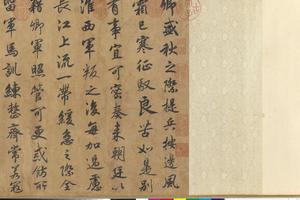 卿盛秋之際提兵按邊風
霜已寒征馭良苦如是別
有事宜可密奏来朝廷以
淮西軍叛之後每加過慮
長江上流一帶緩急之際全
藉卿軍照管可更戒飭所
留軍馬訓練整齊常若寇